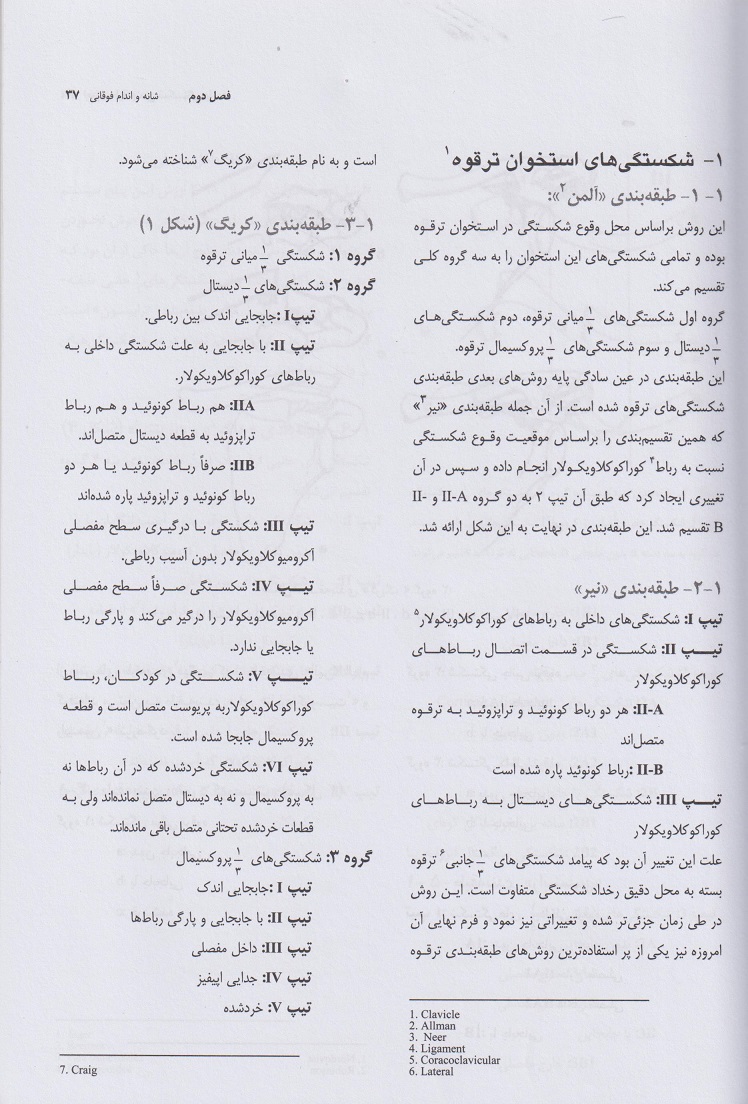 فصل دوم شانه و اندام فوقانی ۳۷
۱- شکستگی‌های استخوان ترقوه۱
۱-۱- طبقه‌بندی «آلمن۲»:
این روش براساس محل وقوع شکستگی در استخوان ترقوه
بوده و تمامی شکستگی‌های این استخوان را به سه گروه کلی
تقسیم می‌کند.
گروه اول شکستگی‌های ۱/۳ میانی ترقوه، دوم شکستگی‌های
۱/۳ دیستال و سوم شکستگی‌های ۱/۳ پروکسیمال ترقوه.
این طبقه‌بندی در عین سادگی پایه روش‌های بعدی طبقه‌بندی
شکستگی‌های ترقوه شده است. از آن جمله طبقه‌بندی «نیر۳»
که همین تقسیم‌بندی را براساس موقعیت وقوع شکستگی
نسبت به رباط۴ کوراکوکلاویکولار انجام داده و سپس در آن
تغییری ایجاد کرد که طبق آن تیپ ۲ به دو گروه II-A و II-
B تقسیم شد. این طبقه‌بندی در نهایت به این شکل ارائه شد.
۱-۲- طبقه‌بندی «نیر»
تیپ I: شکستگی‌های داخلی به رباط‌های کوراکوکلاویکولار۵
تیپ II: شکستگی در قسمت اتصال رباط‌های
کوراکوکلاویکولار
II-A: هر دو رباط کونوئید و تراپزوئید به ترقوه
متصل‌اند
II-B: رباط کونوئید پاره شده است
تیپ III: شکستگی‌های دیستال به رباط‌های
کوراکوکلاویکولار
علت این تغییر آن بود که پیامد شکستگی‌های ۱/۳ جانبی۶ ترقوه
بسته به محل دقیق رخداد شکستگی متفاوت است. این روش
در طی زمان جزئی‌تر شده و تغییراتی نیز نمود و فرم نهایی آن
امروزه نیز یکی از پر استفاده‌ترین روش‌های طبقه‌بندی ترقوه
1. Clavicle
2. Allman
3. Neer
4. Ligament
5. Coracoclavicular
6. Lateral
است و به نام طبقه‌بندی «کریگ۷» شناخته می‌شود.
۱-۳- طبقه‌بندی «کریگ» (شکل ۱)
گروه ۱: شکستگی ۱/۳ میانی ترقوه
گروه ۲: شکستگی‌های ۱/۳ دیستال
تیپ I: جابجایی اندک بین رباطی.
تیپ II: با جابجایی به علت شکستگی داخلی به
رباط‌های کوراکوکلاویکولار.
IIA: هم رباط کونوئید و هم رباط
تراپزوئید به قطعه دیستال متصل‌اند.
IIB: صرفاً رباط کونوئید یا هر دو
رباط کونوئید و تراپزوئید پاره شده‌اند
تیپ III: شکستگی با درگیری سطح مفصلی
آکرومیوکلاویکولار بدون آسیب رباطی.
تیپ IV: شکستگی صرفاً سطح مفصلی
آکرومیوکلاویکولار را درگیر می‌کند و پارگی رباط
یا جابجایی ندارد.
تیپ V: شکستگی در کودکان، رباط
کوراکوکلاویکولاربه پریوست متصل است و قطعه
پروکسیمال جابجا شده است.
تیپ VI: شکستگی خردشده که در آن رباط‌ها نه
به پروکسیمال و نه به دیستال متصل نمانده‌اند ولی به
قطعات خردشده تحتانی متصل باقی مانده‌اند.
گروه ۳: شکستگی‌های ۱/۳ پروکسیمال
تیپ I: جابجایی اندک
تیپ II: با جابجایی و پارگی رباط‌ها
تیپ III: داخل مفصلی
تیپ IV: جدایی اپیفیز
تیپ V: خردشده
7. Craig